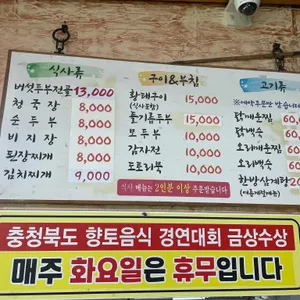 식사류
버섯두부전골 13,000
청국장 8,000
순두부 8,000
비지장 8,000
된장찌개 8,000
김치찌개 9,000
구이&부침
황태구이 15,000
(식사포함)
들기름두부 15,000
모두부 10,000
감자전 10,000
도토리묵 10,000
식사 메뉴는 2인분 이상 주문받습니다
고기류
※예약주문만 받습니다
닭매운찜 60,0
닭백숙 60,
오리매운찜 60,
오리백숙 60,
한방삼계탕 20
충청북도 향토음식 경연대회 금상수상
매주 화요일은 휴무입니다